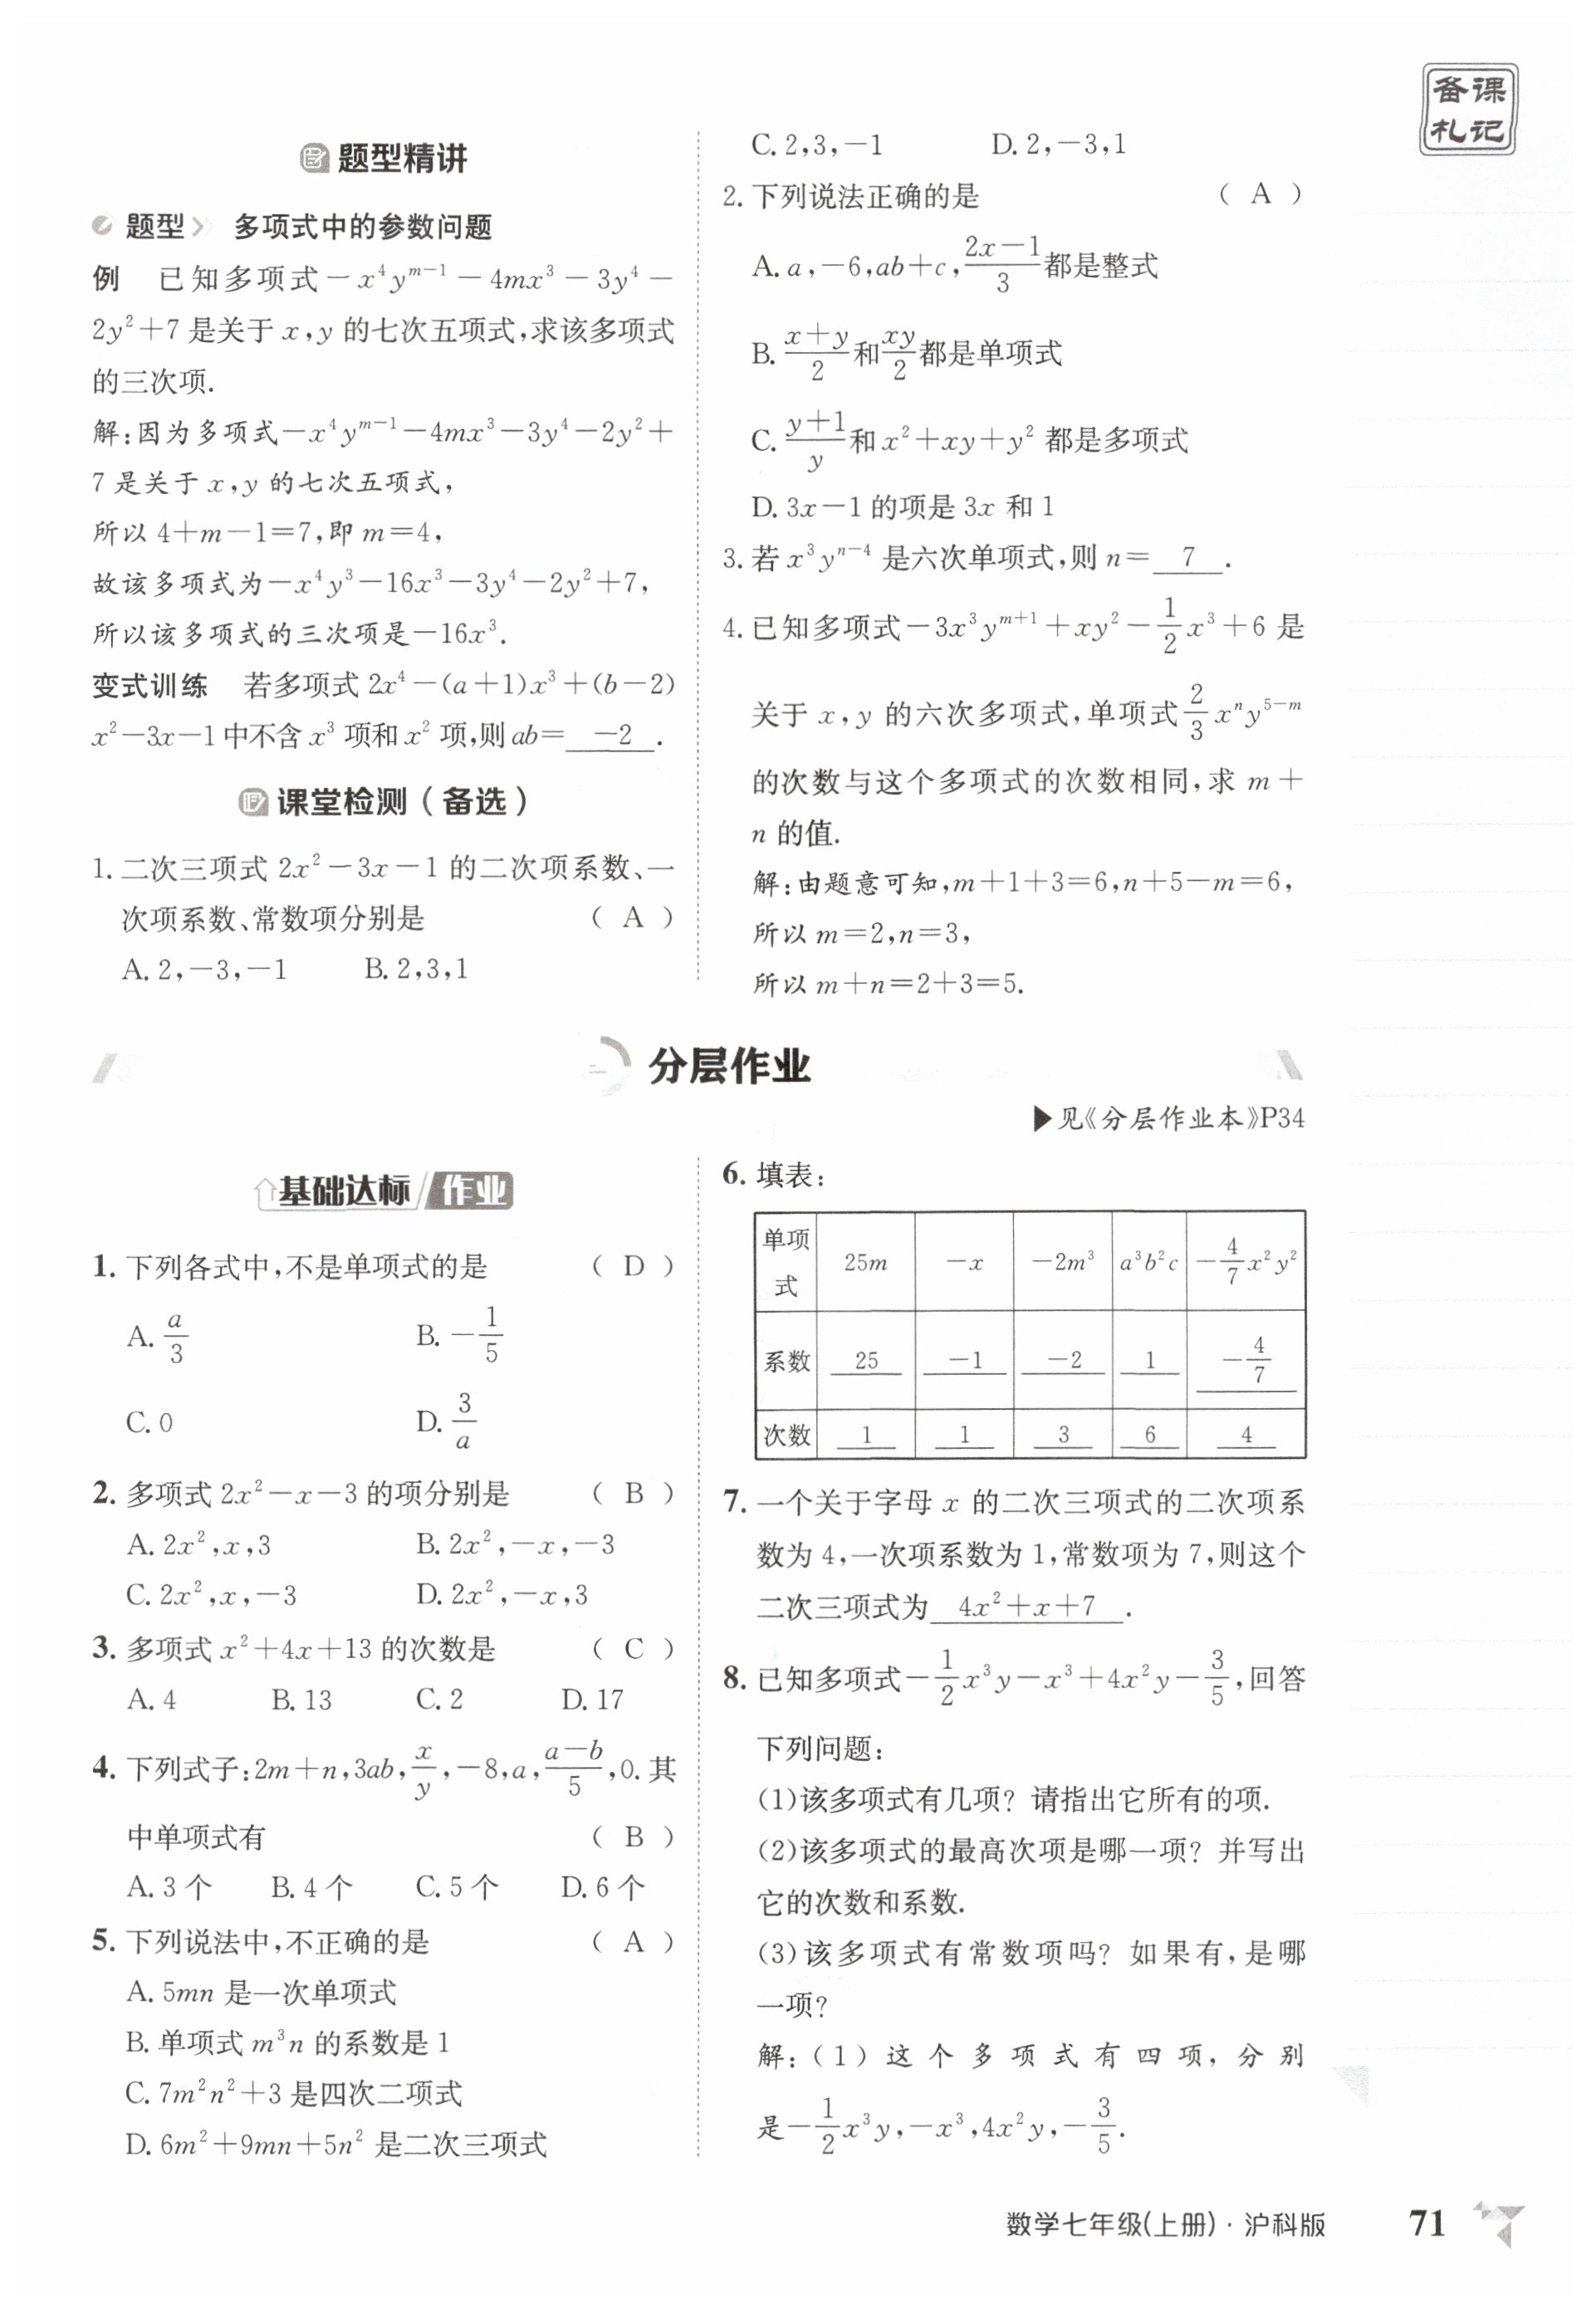 备课
札记
题型精讲
题型 多项式中的参数问题
例 已知多项式−x⁴yᵐ⁻¹−4mx³−3y⁴−
2y²+7是关于x,y的七次五项式,求该多项式
的三次项.
解:因为多项式−x⁴yᵐ⁻¹−4mx³−3y⁴−2y²+
7是关于x,y的七次五项式,
所以4+m−1=7,即m=4,
故该多项式为−x⁴y³−16x³−3y⁴−2y²+7,
所以该多项式的三次项是−16x³.
变式训练 若多项式2x⁴−(a+1)x³+(b−2)
x²−3x−1中不含x³项和x²项,则ab= −2 .
课堂检测(备选)
1.二次三项式2x²−3x−1的二次项系数、一
次项系数、常数项分别是 ( A )
A.2,−3,−1 B.2,3,1
C.2,3,−1 D.2,−3,1
2.下列说法正确的是 ( A )
A.a,−6,ab+c,(2x−1)/3都是整式
B.(x+y)/2和xy/2都是单项式
C.(y+1)/y和x²+xy+y²都是多项式
D.3x−1的项是3x和1
3.若x³yⁿ⁻⁴是六次单项式,则n= 7 .
4.已知多项式−3x³yᵐ⁺¹+xy²−1/2x³+6是
关于x,y的六次多项式,单项式2/3xⁿy⁵⁻ᵐ
的次数与这个多项式的次数相同,求m+
n的值.
解:由题意可知,m+1+3=6,n+5−m=6,
所以m=2,n=3,
所以m+n=2+3=5.
分层作业
▶见《分层作业本》P34
基础达标 作业
1.下列各式中,不是单项式的是 ( D )
A.a/3 B.−1/5
C.0 D.3/a
2.多项式2x²−x−3的项分别是 ( B )
A.2x²,x,3 B.2x²,−x,−3
C.2x²,x,−3 D.2x²,−x,3
3.多项式x²+4x+13的次数是 ( C )
A.4 B.13 C.2 D.17
4.下列式子:2m+n,3ab,x/y,−8,a,(a−b)/5,0.其
中单项式有 ( B )
A.3个 B.4个 C.5个 D.6个
5.下列说法中,不正确的是 ( A )
A.5mn是一次单项式
B.单项式m³n的系数是1
C.7m²n²+3是四次二项式
D.6m²+9mn+5n²是二次三项式
6.填表:
单项式 25m −x −2m³ a³b²c −4/7x²y²
系数 25 −1 −2 1 −4/7
次数 1 1 3 6 4
7.一个关于字母x的二次三项式的二次项系
数为4,一次项系数为1,常数项为7,则这个
二次三项式为 4x²+x+7 .
8.已知多项式−1/2x³y−x³+4x²y−3/5,回答
下列问题:
(1)该多项式有几项?请指出它所有的项.
(2)该多项式的最高次项是哪一项?并写出
它的次数和系数.
(3)该多项式有常数项吗?如果有,是哪
一项?
解:(1)这个多项式有四项,分别
是−1/2x³y,−x³,4x²y,−3/5.
数学七年级(上册)·沪科版 71